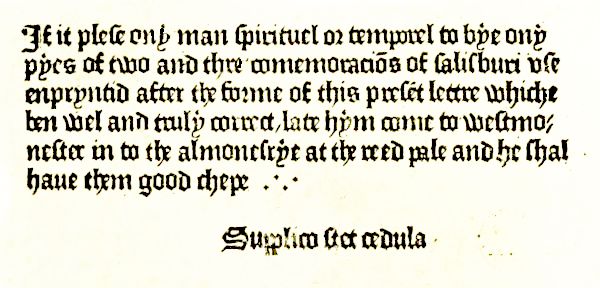 If it plese ony man spirituel or temporel to bye ony
pyes of two and thre comemoraciōs of salisburi vse
enpryntid after the forme of this presēt lettre whiche
ben wel and truly correct, late hym come to westmo-
nester in to the almonesrye at the reed pale and he shal
haue them good chepe .·.·
Supplico stet cedula